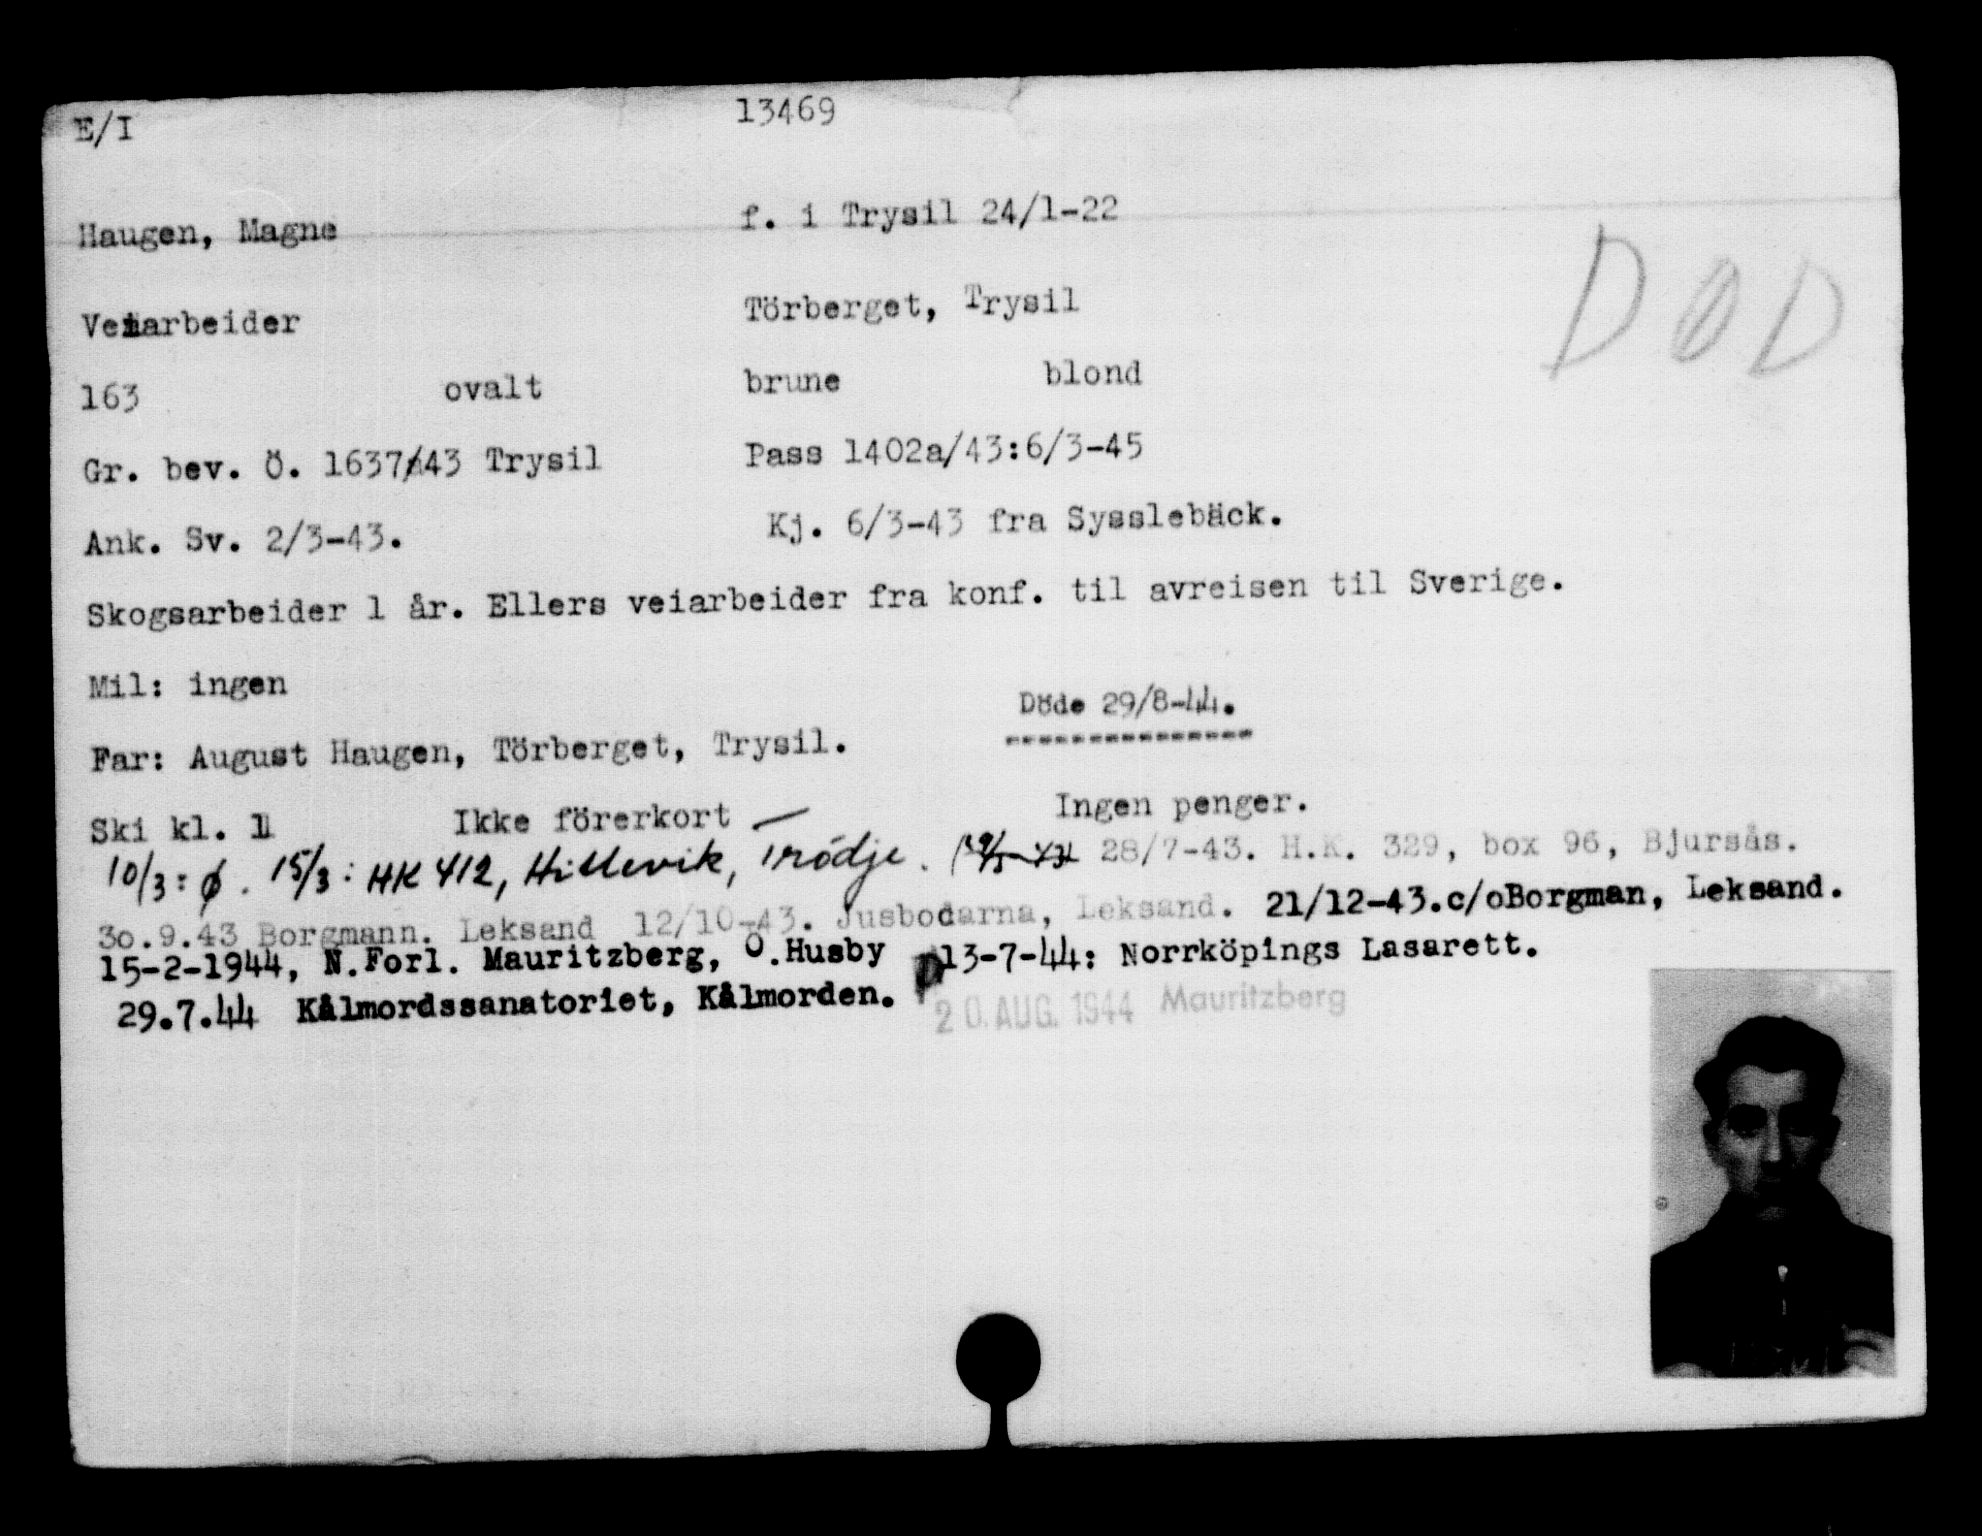 E/I 13469
Haugen, Magne f. i Trysil 24/1-22
DØD
Veiarbeider Törberget, Trysil
163 ovalt brune blond
Gr. bev. Ö. 1637/43 Trysil Pass 1402a/43:6/3-45
Ank. Sv. 2/3-43. Kj. 6/3-43 fra Sysslebäck.
Skogsarbeider 1 år. Ellers veiarbeider fra konf. til avreisen til Sverige.
Mil: ingen
Döde 29/8-44.
Far: August Haugen, Törberget, Trysil.
Ski kl. 1 Ikke förerkort — Ingen penger.
10/3: ø. 15/3: HK 412, Hillevik, Trödje. 28/7-43. H.K. 329, box 96, Bjursås.
30.9.43 Borgmann. Leksand 12/10-43. Jusbodarna, Leksand. 21/12-43.c/oBorgman, Leksand.
15-2-1944, N.Forl. Mauritzberg, Ö.Husby 13-7-44: Norrköpings Lasarett.
29.7.44 Kålmordssanatoriet, Kålmorden. 20. AUG. 1944 Mauritzberg